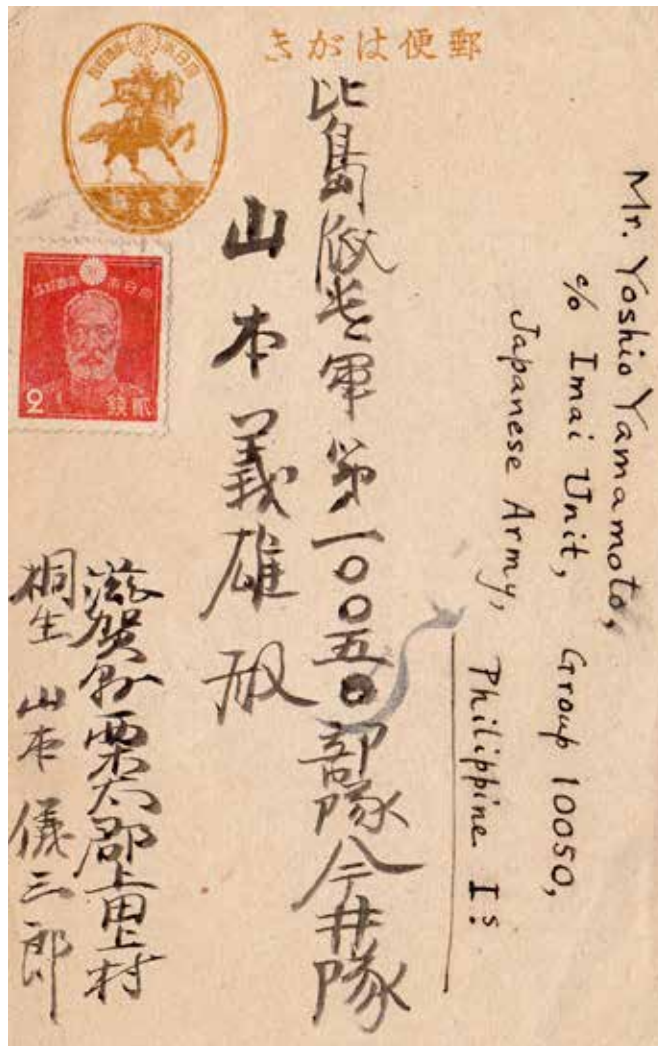 郵便はがき
Mr. Yoshio Yamamoto,
c/o Imai Unit, Group 10050,
Japanese Army, Philippine Is.
比島派遣軍第一〇〇五〇部隊今井隊
山本義雄殿
滋賀縣栗太郡上田上村
桐生 山本儀三郎
大日本帝國郵便
2 貳錢